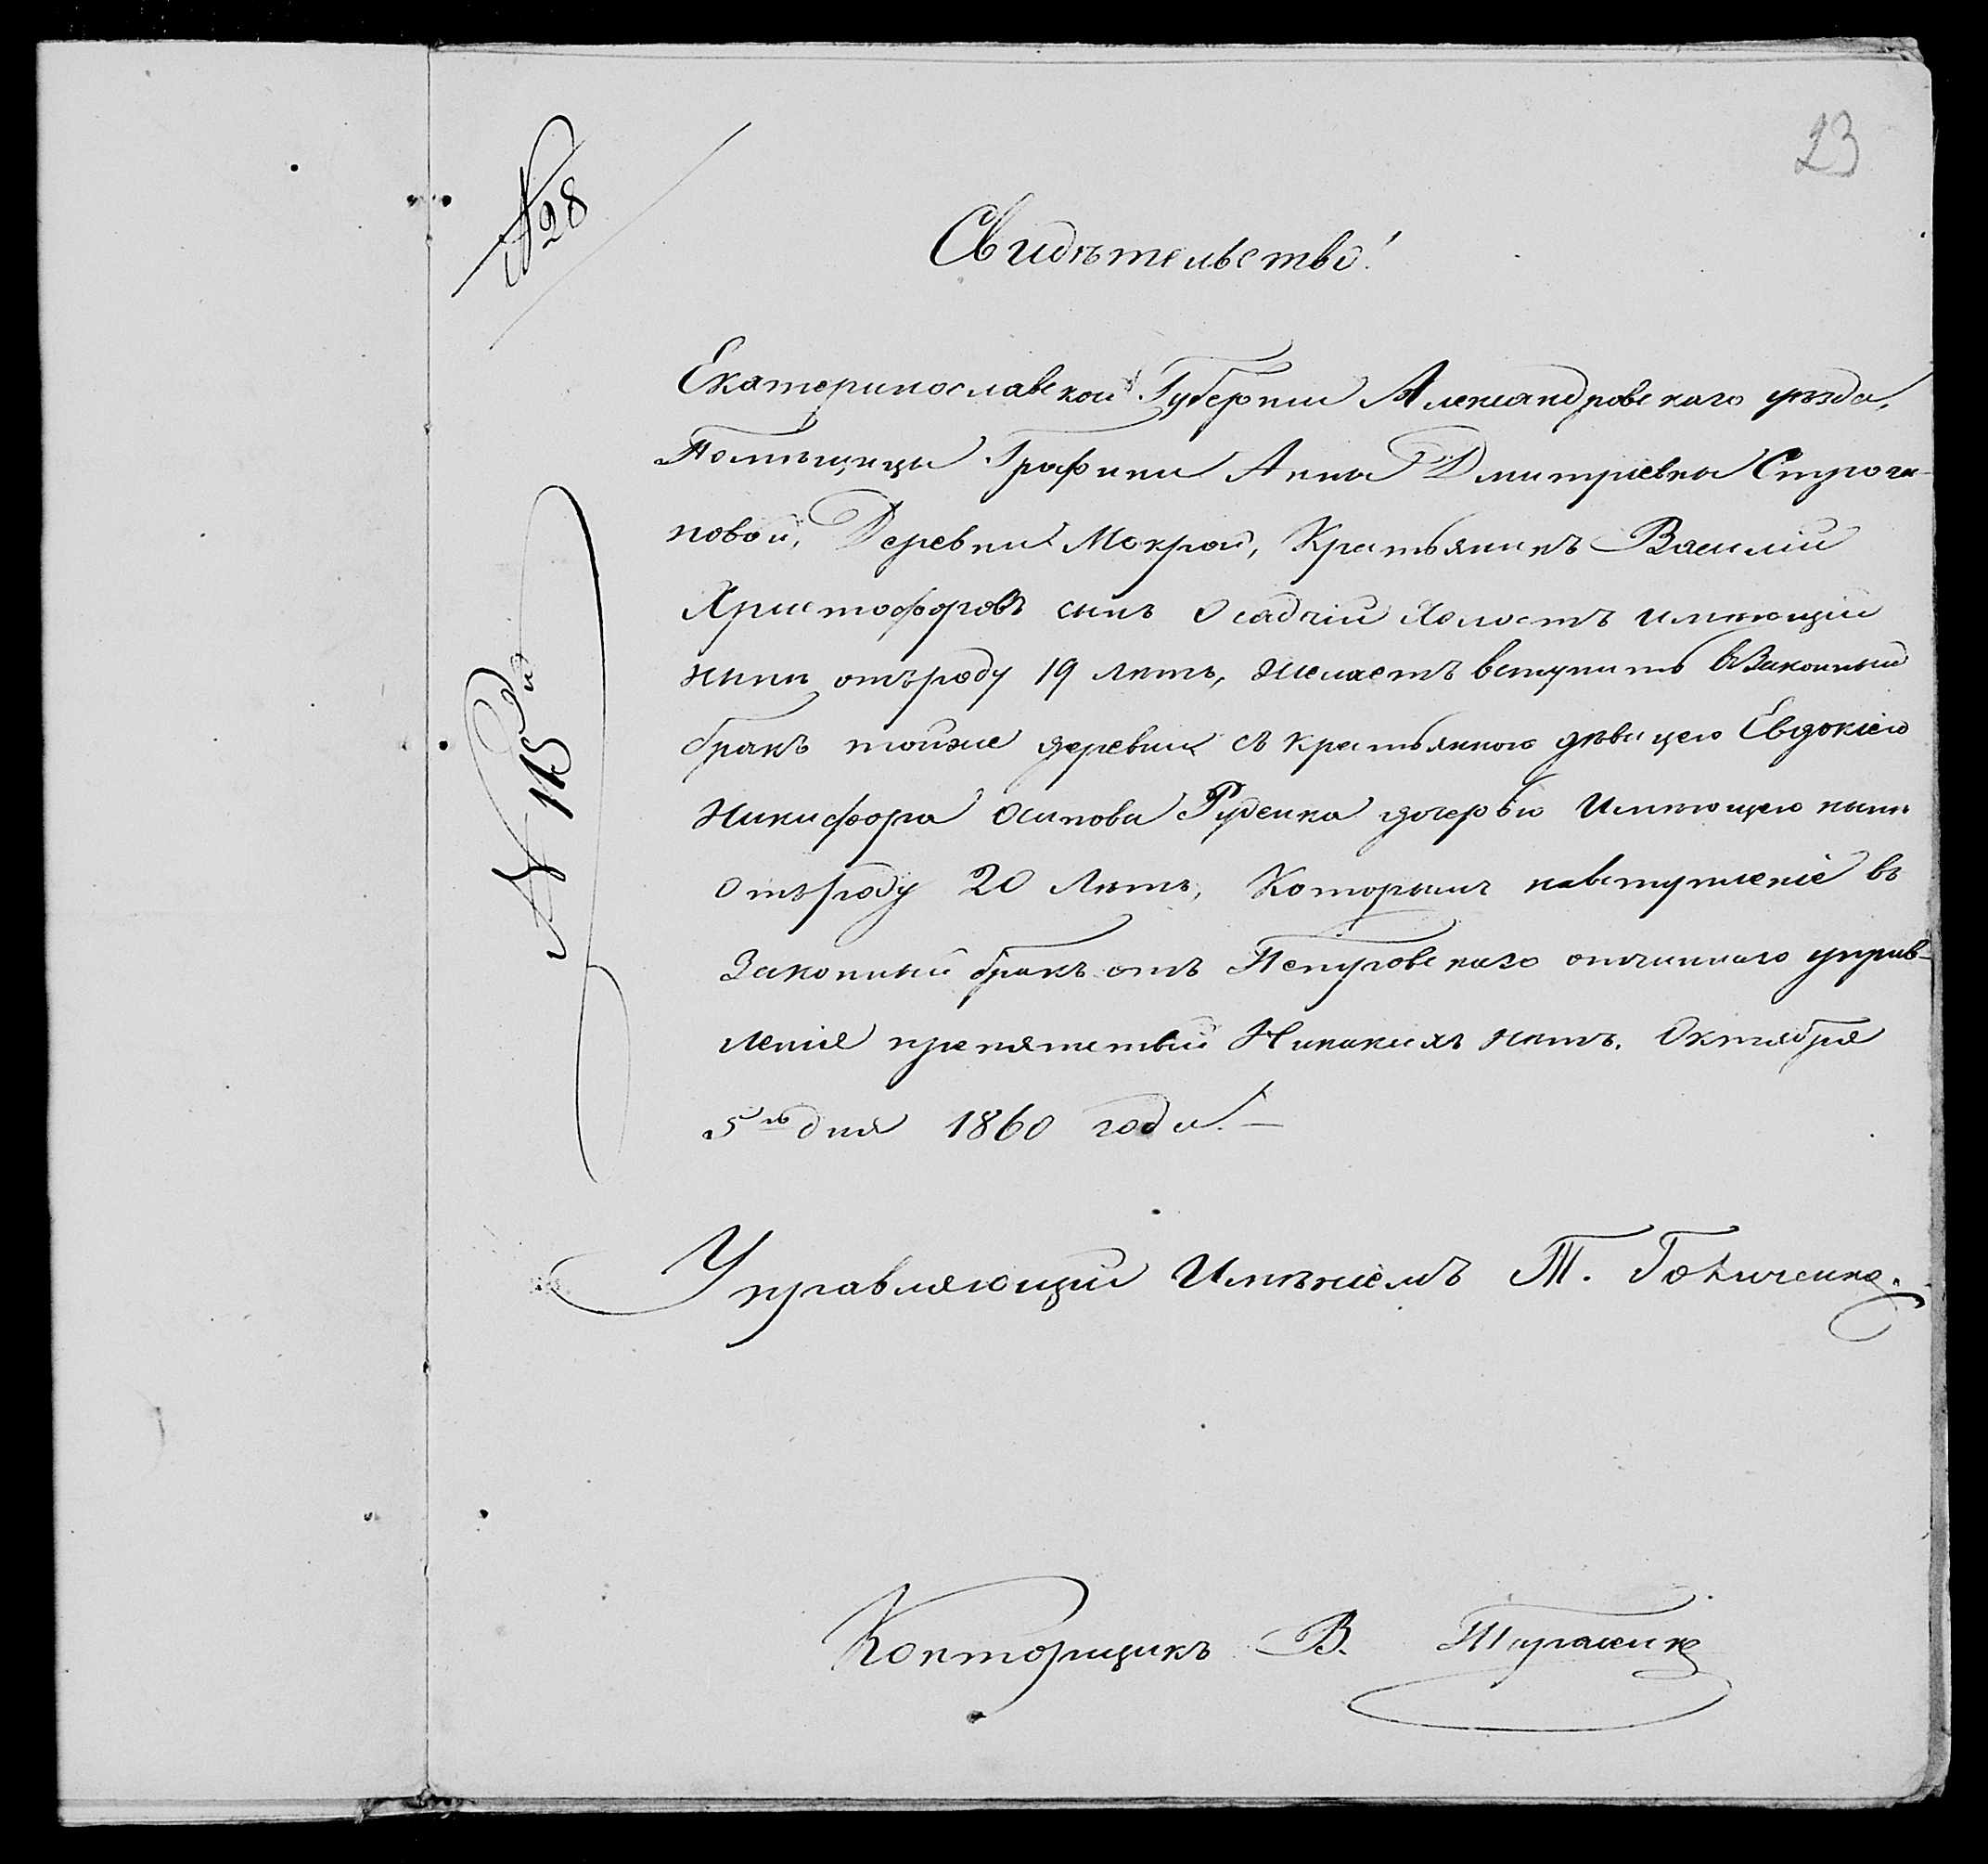 23
№ 28
Свидѣтельство!
Екатеринославской Губернии Александровскаго уѣзда,
Помѣщицы Графини Анна Дмитріевна Строга-
новой, Деревни Мокрой, Крестьянинъ Василій
Христофоровъ сынъ Осадчій Холостъ имѣющій
нынѣ отъ роду 19 лѣтъ, желаетъ вступить въ Законный
бракъ тойже деревни съ крестьянкою дѣвицею Евдокіею
Никифора Осипова Руденка дочерью Имѣющею нынѣ
отъ роду 20 Лѣтъ, Которымъ на вступленіе въ
Законный бракъ отъ Петровскаго отчиннаго управ-
ленія препятствій Никакихъ нѣтъ. Октября
5го дня 1860 года.—
Управляющій Имѣніемъ Т.
Конторщикъ В.
№ 115й